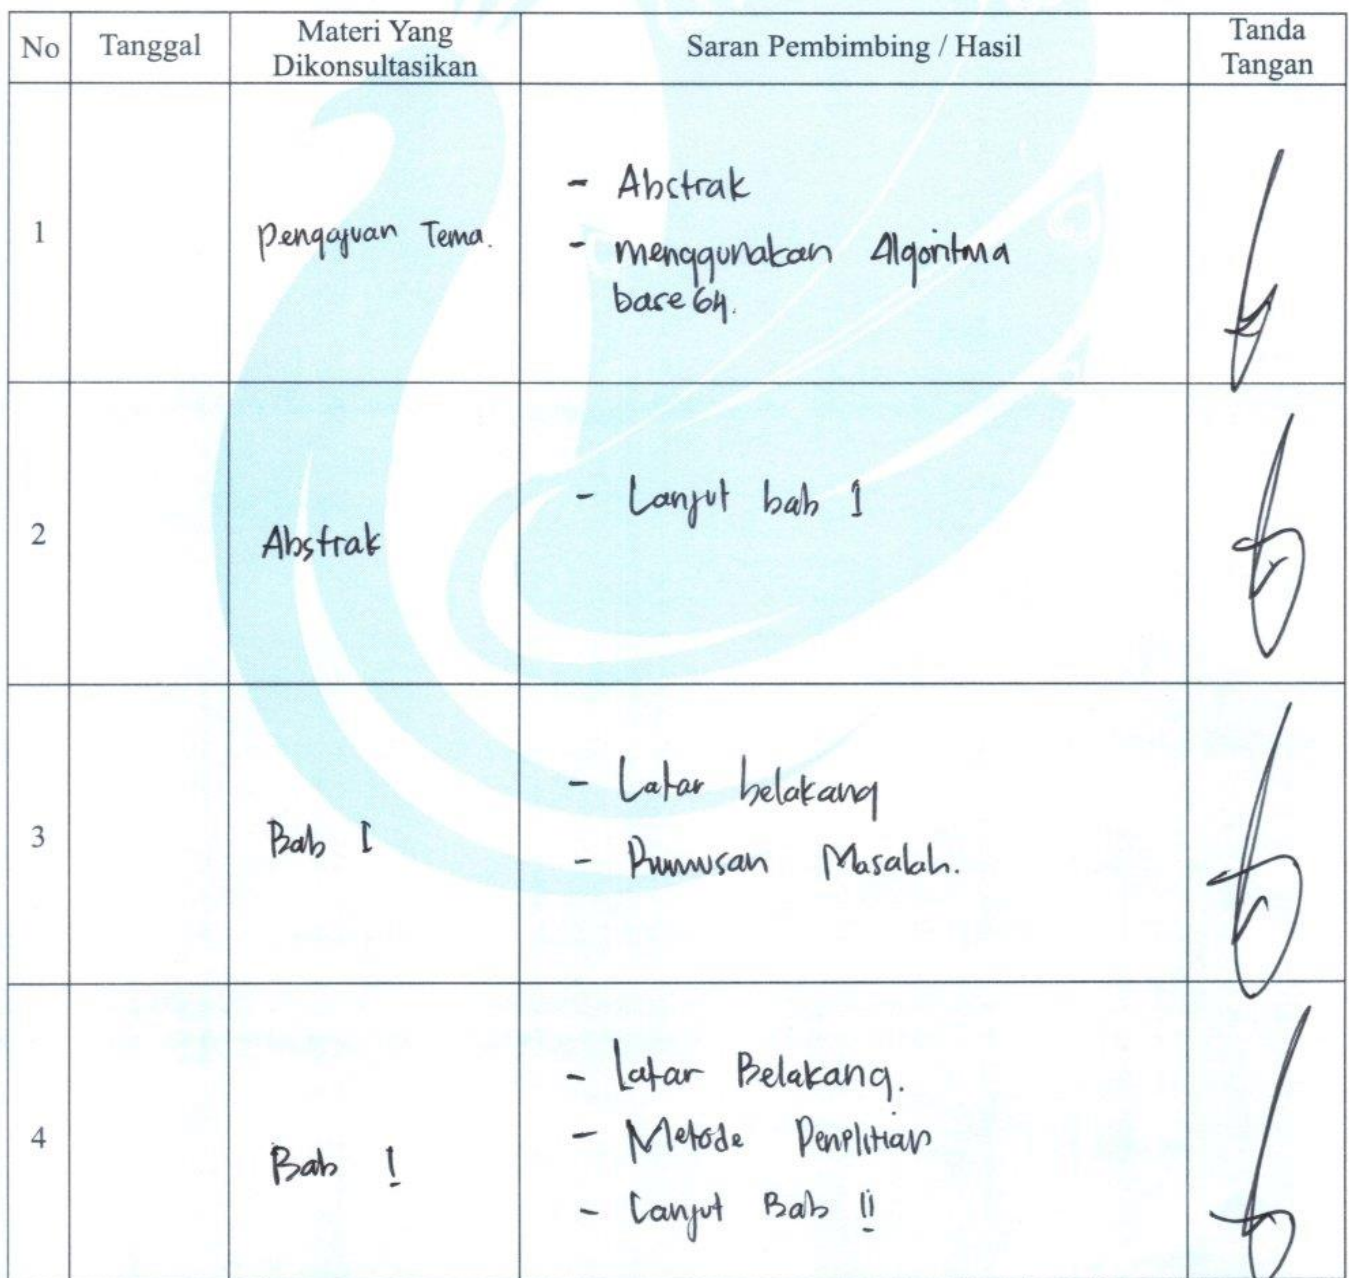 No
Tanggal
Materi Yang
Dikonsultasikan
Saran Pembimbing / Hasil
Tanda
Tangan
1
Pengajuan Tema.
- Abstrak
- menggunakan Algoritma
base 64.
2
Abstrak
- Lanjut bab 1
3
Bab I
- Latar belakang
- Rumusan Masalah.
4
Bab I
- Latar Belakang.
- Metode Penelitian
- Lanjut Bab II